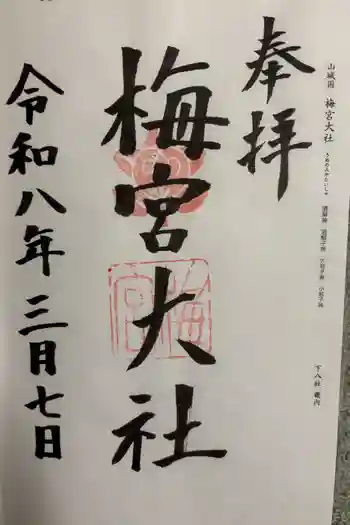 山城国 梅宮大社
奉拝
梅宮大社
令和八年三月七日
下八社 畿内
梅宮